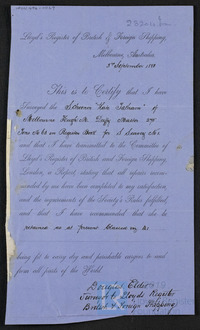 Lloyd's Register of British & Foreign Shipping,
Melbourne, Australia,
5th September 18
This is to Certify that I have
Surveyed the Schooner
Melbourne Hugh Mc Master 279
Tons No 60 in Register Book for
and that I have transmitted to the Committee of
Lloyd's Register of British and Foreign Shipping,
London, a Report, stating that all repairs recom-
mended by me have been completed to my satisfaction,
and the requirements of the Society's Rules fulfilled,
and that I have recommended that she be
retained as at present
being fit to carry dry and perishable cargoes to and
from all parts of the World.
Douglas Elder
Surveyor to Lloyds Register
British & Foreign Shipping